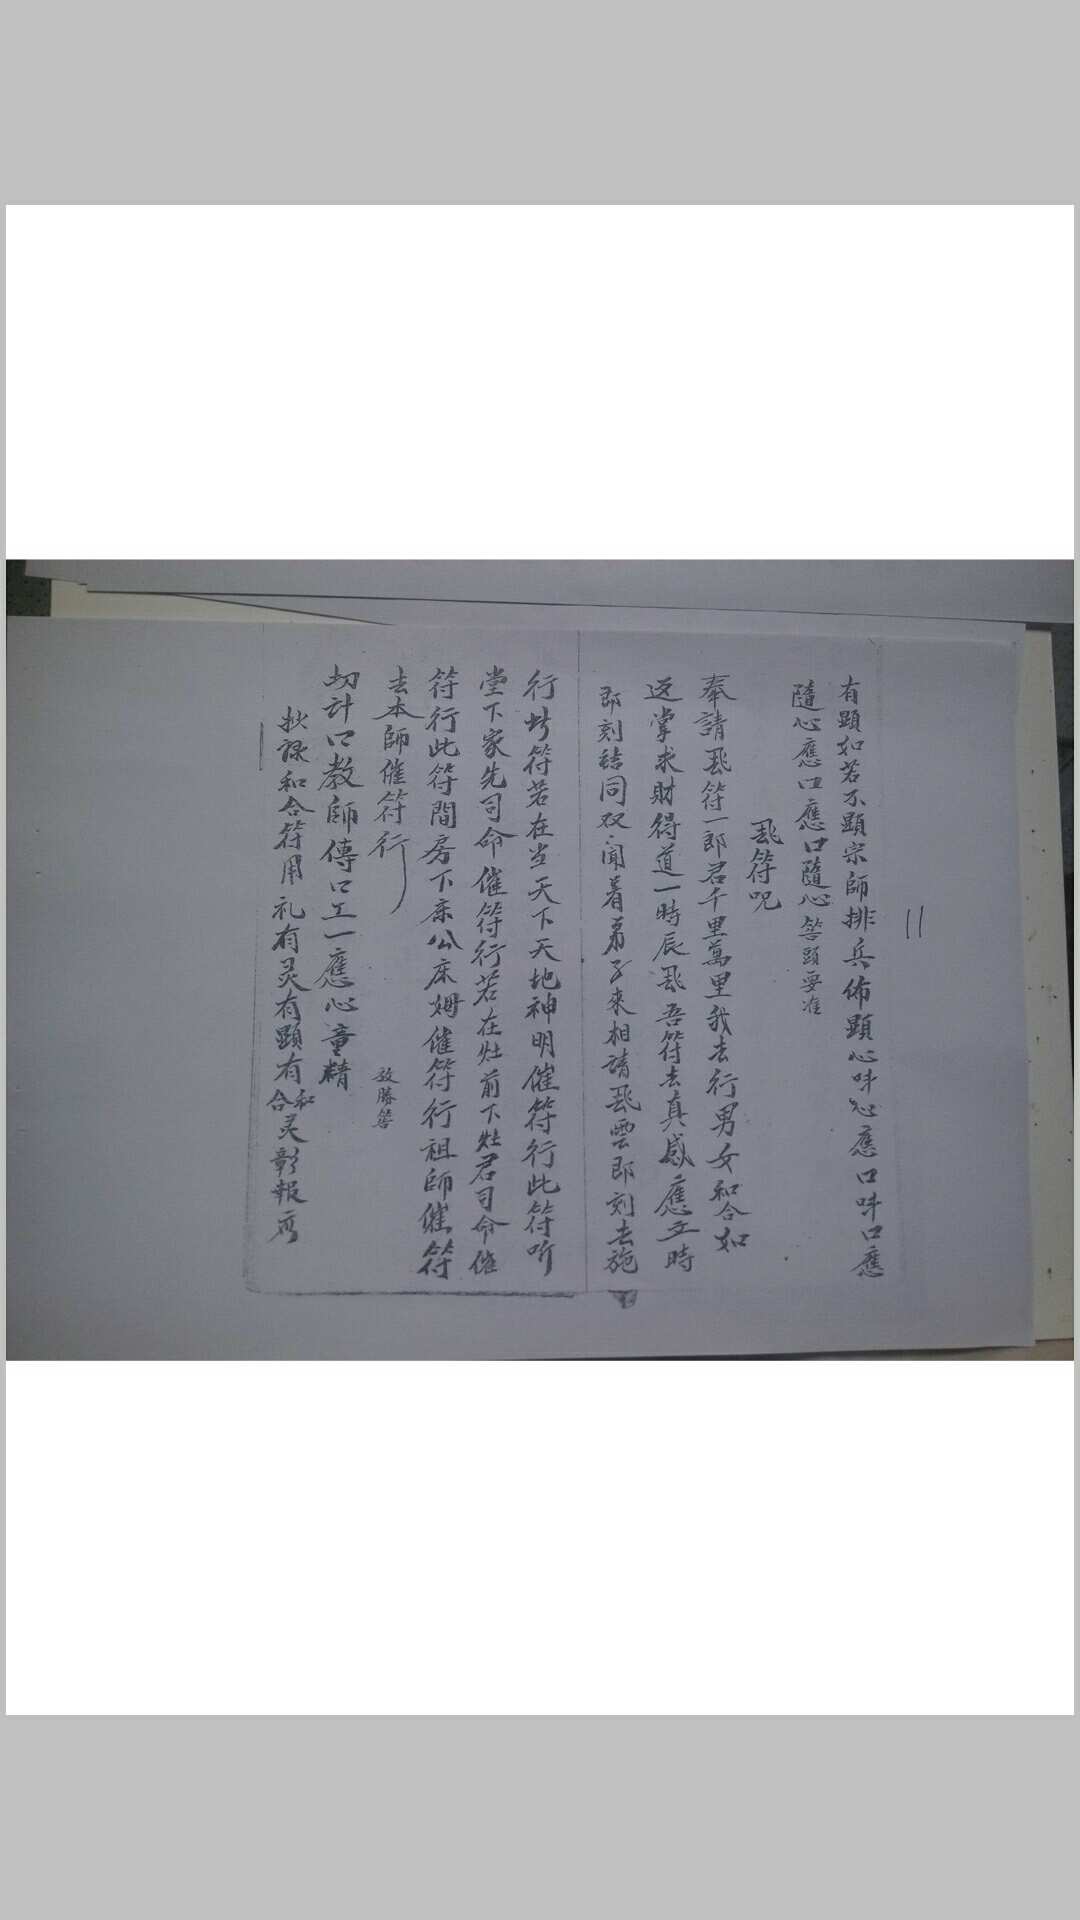 11
有顕如若不顕宗師排兵佈顕心味心應口味口應
隨心應口應口隨心筶頭要准
飛符呪
奉請飛符一郎君千里萬里我去行男女和合如
返掌求財得道一時辰飛吾符去真感應立時
即刻結同双聞着弟子來相請飛雲即刻去施
行此符若在当天下天地神明催符行此符听
堂下家先司命催符行若在灶前下灶君司命催
符行此符間房下床公床姆催符行祖師催符
去本師催符行
放勝筶
切計口教師傳口工一應心童精
抄錄和合符用礼有灵有顕有和合灵彰報應